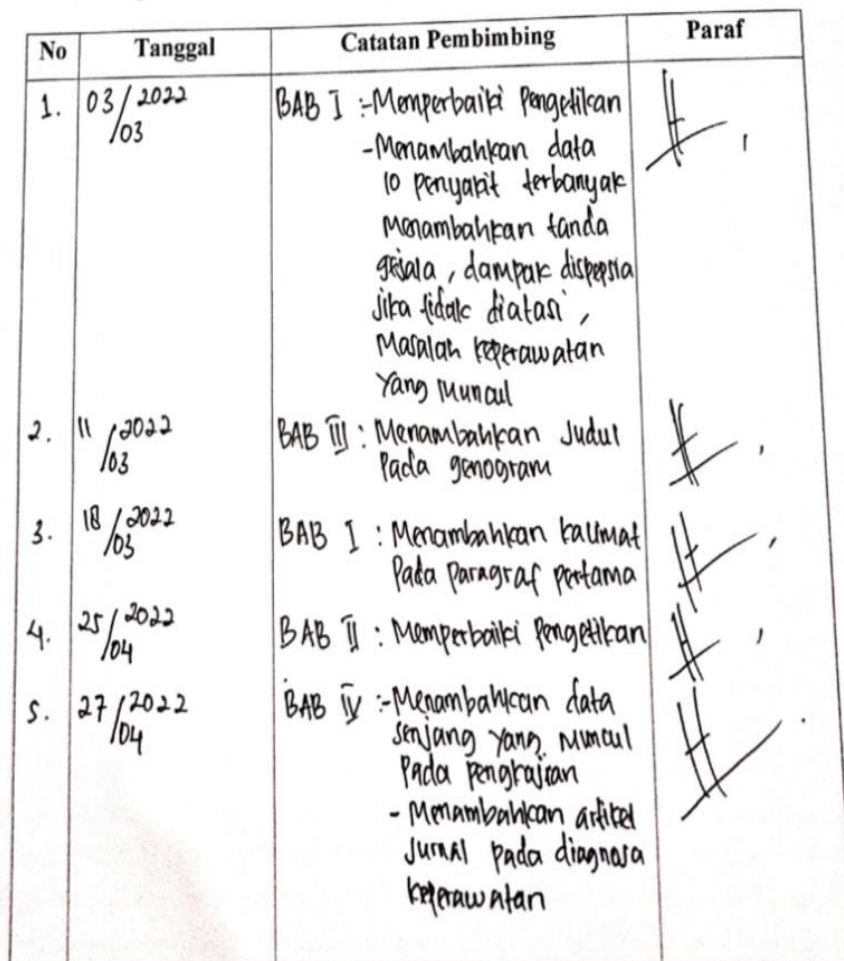 No Tanggal Catatan Pembimbing Paraf
1. 03/03 2022 BAB I :-Memperbaiki Pengetikan
-Menambahkan data
10 penyakit terbanyak
Menambahkan tanda
gejala, dampak dispepsia
jika tidak diatasi,
Masalah keperawatan
Yang Muncul
2. 11/03 2022 BAB III : Menambahkan Judul
Pada genogram
3. 18/03 2022 BAB I : Menambahkan kalimat
Pada Paragraf pertama
4. 25/04 2022 BAB II : Memperbaiki Pengetikan
5. 27/04 2022 BAB IV :-Menambahkan data
senjang Yang Muncul
Pada Pengkajian
- Menambahkan artikel
Jurnal pada diagnosa
keperawatan